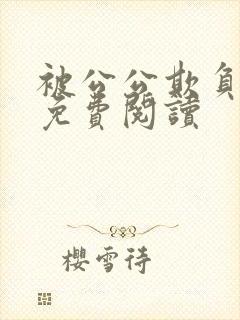 被公公欺負
免費閱讀
櫻雪待